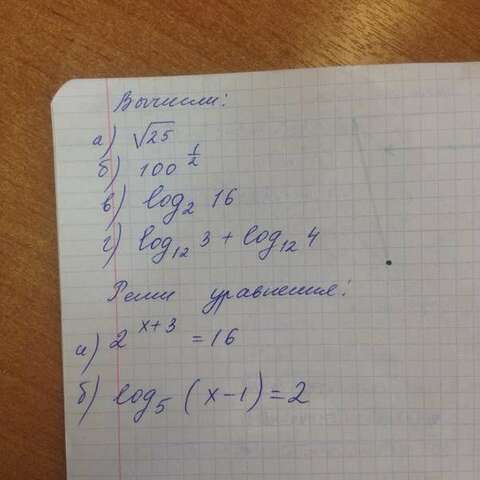 Вычисли:
а) √25
б) 100^(1/2)
в) log₂ 16
г) log₁₂ 3 + log₁₂ 4
Реши уравнения:
а) 2^(x+3) = 16
б) log₅ (x-1) = 2